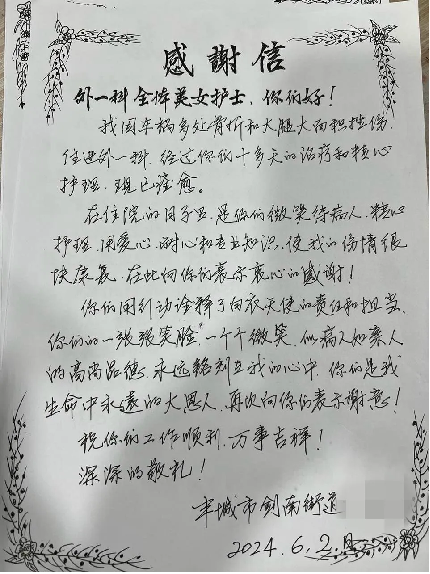 感謝信
外一科全体美女护士，你们好！
我因车祸多处骨折和大腿大面积挫伤，
住进外一科，经过你们十多天的治疗和精心
护理，现已痊愈。
在住院的日子里，是你们微笑待病人，精心
护理，用爱心、耐心和专业知识，使我的伤情很
快康复，在此向你们表示衷心的感谢！
你们用行动诠释了白衣天使的责任和担当，
你们的一张张笑脸，一个个微笑，似病人如亲人
的高尚品德，永远铭刻在我的心中，你们是我
生命中永远的大恩人，再次向你们表示谢意！
祝你们工作顺利，万事吉祥！
深深的敬礼！
丰城市剑南街道
2024.6.2日